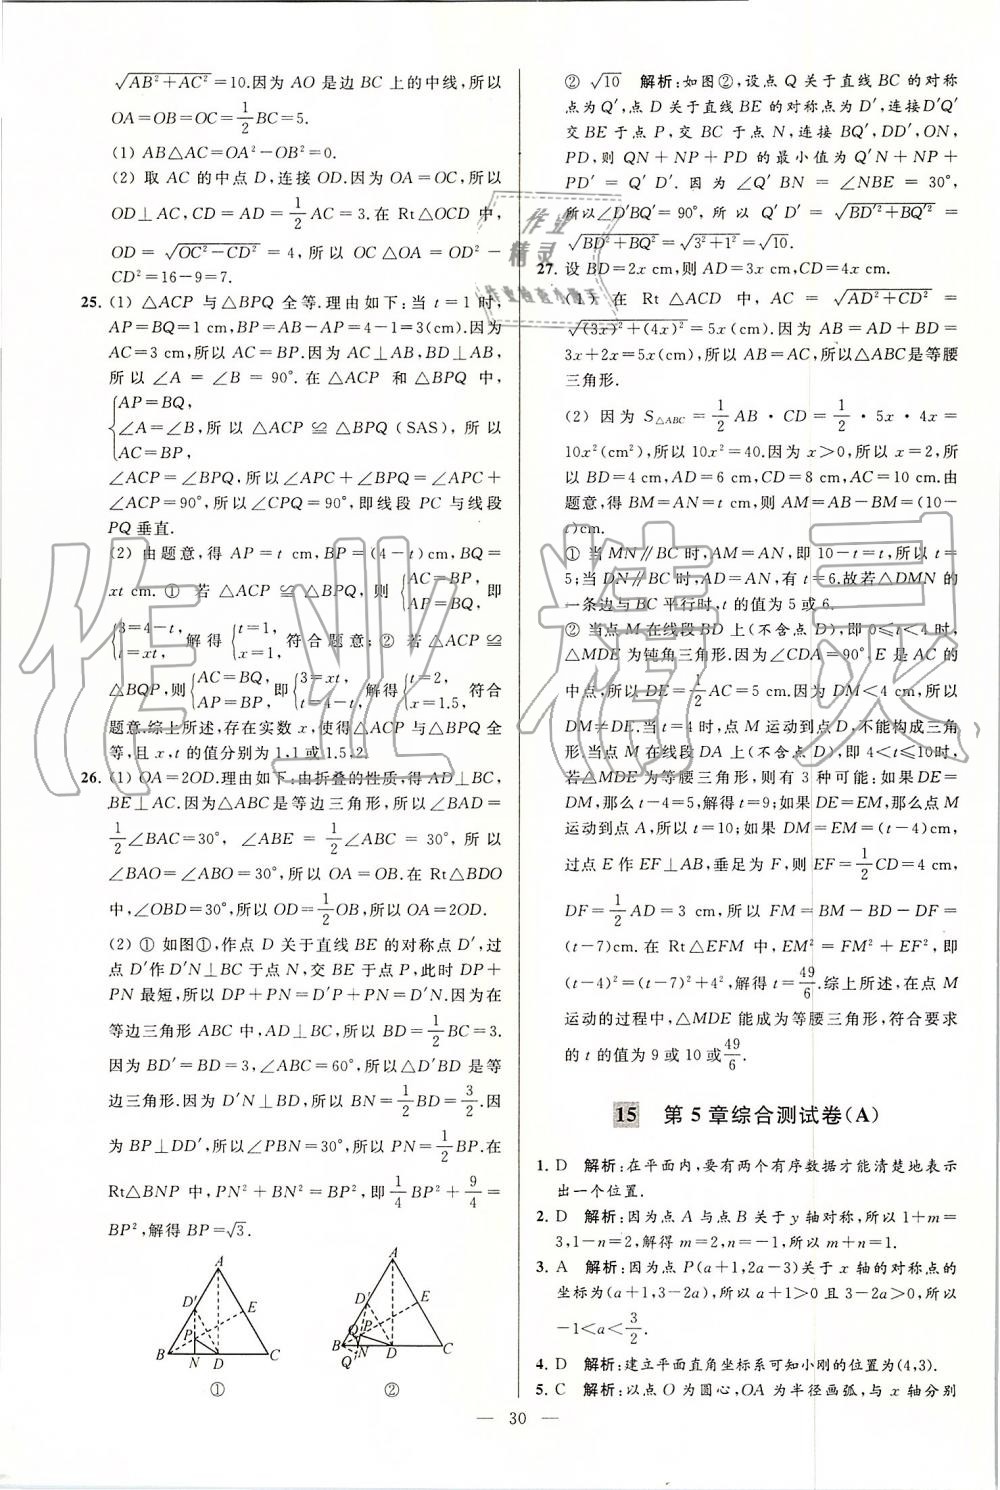 √(AB²+AC²)=10.因为 AO 是边 BC 上的中线,所以
OA=OB=OC=1/2BC=5.
(1) AB△AC=OA²-OB²=0.
(2) 取 AC 的中点 D,连接 OD.因为 OA=OC,所以
OD⊥AC,CD=AD=1/2AC=3.在 Rt△OCD 中,
OD=√(OC²-CD²)=4,所以 OC△OA=OD²-
CD²=16-9=7.
25. (1) △ACP 与△BPQ 全等.理由如下:当 t=1 时,
AP=BQ=1 cm,BP=AB-AP=4-1=3(cm).因为
AC=3 cm,所以 AC=BP.因为 AC⊥AB,BD⊥AB,
所以∠A=∠B=90°.在△ACP 和△BPQ 中,
{AP=BQ,
∠A=∠B,所以△ACP≌△BPQ(SAS),所以
AC=BP,
∠ACP=∠BPQ,所以∠APC+∠BPQ=∠APC+
∠ACP=90°,所以∠CPQ=90°,即线段 PC 与线段
PQ 垂直.
(2) 由题意,得 AP=t cm,BP=(4-t)cm,BQ=
xt cm.① 若△ACP≌△BPQ,则{AC=BP,AP=BQ,即
{3=4-t,t=xt,解得{t=1,x=1,符合题意;② 若△ACP≌
△BQP,则{AC=BQ,AP=BP,即{3=xt,t=4-t,解得{t=2,x=1.5,符合
题意.综上所述,存在实数 x,使得△ACP 与△BPQ 全
等,且 x,t 的值分别为 1,1 或 1.5,2.
26. (1) OA=2OD.理由如下:由折叠的性质,得 AD⊥BC,
BE⊥AC.因为△ABC 是等边三角形,所以∠BAD=
1/2∠BAC=30°,∠ABE=1/2∠ABC=30°,所以
∠BAO=∠ABO=30°,所以 OA=OB.在 Rt△BDO
中,∠OBD=30°,所以 OD=1/2OB,所以 OA=2OD.
(2) ① 如图①,作点 D 关于直线 BE 的对称点 D′,过
点 D′作 D′N⊥BC 于点 N,交 BE 于点 P,此时 DP+
PN 最短,所以 DP+PN=D′P+PN=D′N.因为在
等边三角形 ABC 中,AD⊥BC,所以 BD=1/2BC=3.
因为 BD′=BD=3,∠ABC=60°,所以△D′BD 是等
边三角形.因为 D′N⊥BD,所以 BN=1/2BD=3/2.因
为 BP⊥DD′,所以∠PBN=30°,所以 PN=1/2BP.在
Rt△BNP 中,PN²+BN²=BP²,即1/4BP²+9/4=
BP²,解得 BP=√3.
A D′ E P B N D C
①
A D′ E P Q B N D C Q′
②
② √10 解析:如图②,设点 Q 关于直线 BC 的对称
点为 Q′,点 D 关于直线 BE 的对称点为 D′,连接D′Q′
交 BE 于点 P,交 BC 于点 N,连接 BQ′,DD′,QN,
PD,则 QN+NP+PD 的最小值为 Q′N+NP+
PD′=Q′D′.因为∠Q′BN=∠NBE=30°,
所以∠D′BQ′=90°,所以 Q′D′=√(BD′²+BQ′²)=
√(BD²+BQ²)=√(3²+1²)=√10.
27. 设 BD=2x cm,则 AD=3x cm,CD=4x cm.
(1) 在 Rt△ACD 中,AC=√(AD²+CD²)=
√((3x)²+(4x)²)=5x(cm).因为 AB=AD+BD=
3x+2x=5x(cm),所以 AB=AC,所以△ABC是等腰
三角形.
(2) 因为 S△ABC=1/2AB·CD=1/2·5x·4x=
10x²(cm²),所以 10x²=40.因为 x>0,所以 x=2,所
以 BD=4 cm,AD=6 cm,CD=8 cm,AC=10 cm.由
题意,得 BM=AN=t cm,则 AM=AB-BM=(10-
t)cm.
① 当 MN∥BC 时,AM=AN,即 10-t=t,所以 t=
5;当 DN∥BC 时,AD=AN,有 t=6.故若△DMN 的
一条边与 BC 平行时,t 的值为 5 或 6.
② 当点 M 在线段 BD 上(不含点 D),即 0≤t<4 时,
△MDE 为钝角三角形.因为∠CDA=90°,E 是 AC 的
中点,所以 DE=1/2AC=5 cm.因为 DM<4 cm,所以
DM≠DE.当 t=4 时,点 M 运动到点 D,不能构成三角
形.当点 M 在线段 DA 上(不含点 D),即 4<t≤10时,
若△MDE 为等腰三角形,则有 3 种可能:如果 DE=
DM,那么 t-4=5,解得 t=9;如果 DE=EM,那么点 M
运动到点 A,所以 t=10;如果 DM=EM=(t-4)cm,
过点 E 作 EF⊥AB,垂足为 F,则 EF=1/2CD=4 cm,
DF=1/2AD=3 cm,所以 FM=BM-BD-DF=
(t-7)cm.在 Rt△EFM 中,EM²=FM²+EF²,即
(t-4)²=(t-7)²+4²,解得 t=49/6.综上所述,在点 M
运动的过程中,△MDE 能成为等腰三角形,符合要求
的 t 的值为 9 或 10 或49/6.
15 第5章综合测试卷(A)
1. D 解析:在平面内,要有两个有序数据才能清楚地表示
出一个位置.
2. D 解析:因为点 A 与点 B 关于 y 轴对称,所以 1+m=
3,1-n=2,解得 m=2,n=-1,所以 m+n=1.
3. A 解析:因为点 P(a+1,2a-3)关于 x 轴的对称点的
坐标为(a+1,3-2a),所以 a+1>0 且 3-2a>0,所以
-1<a<3/2.
4. D 解析:建立平面直角坐标系可知小刚的位置为(4,3).
5. C 解析:以点 O 为圆心,OA 为半径画弧,与 x 轴分别
— 30 —
作业精灵